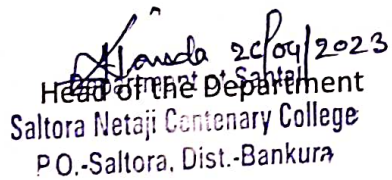 20/04/2023
Department of Santali
Head of the Department
Saltora Netaji Centenary College
P.O.-Saltora, Dist.-Bankura